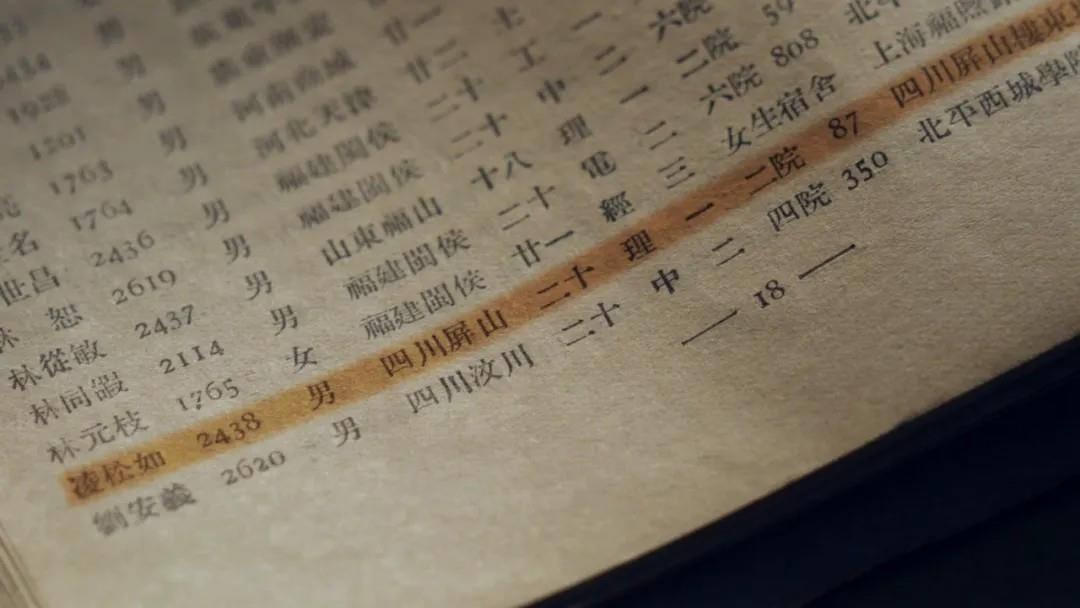 1201 男
1763 男 河南商城 廿一
名 1764 男 河北天津 廿二 土
世昌 2436 男 福建閩侯 二十 工 一
林恕 2619 男 福建閩侯 二十 中 二 六院
林從敏 2437 男 山東福山 十八 理 一 二院 59
林同嘏 2114 男 福建閩侯 二十 電 二 六院 808 北平
林元枝 1765 女 福建閩侯 廿一 經 三 女生宿舍 上海福熙路
凌松如 2438 男 四川屏山 二十 理 一 二院 87 四川屏山樓東
劉安義 2620 男 四川汶川 二十 中 二 四院 350 北平西城學院
— 18 —